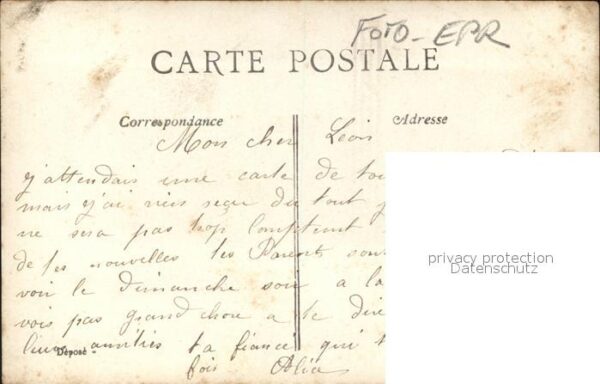 Foto-EPR
CARTE POSTALE
Correspondance
Adresse
Mon cher Léon
j'attendais une carte de toi
mais j'ai rien reçu du tout j
ne sera pas trop comptent
de tes nouvelles tes Parents sont
voir le dimanche soir a la
vois pas grand chose a te dire
ta fiancé qui t
Déposé
fois
privacy protection
Datenschutz